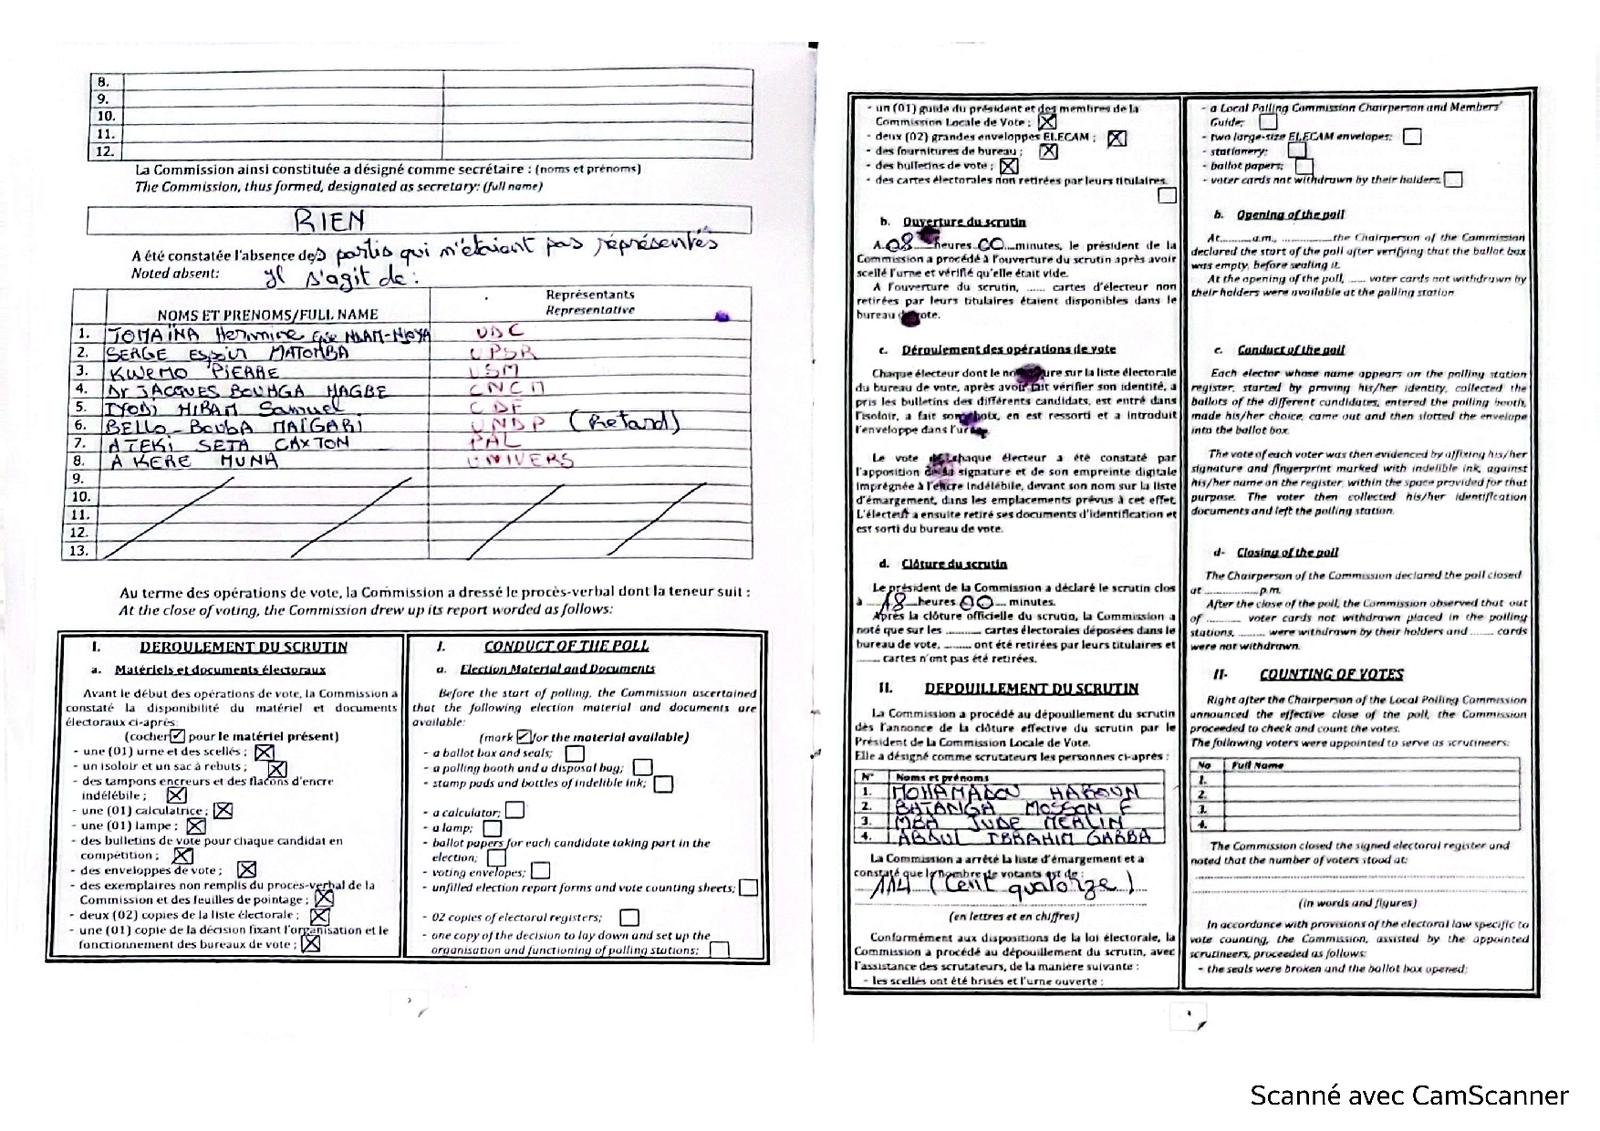 8.
9.
10.
11.
12.
La Commission ainsi constituée a désigné comme secrétaire : (noms et prénoms)
The Commission, thus formed, designated as secretary: (full name)
RIEN
A été constatée l'absence des partis qui n'étaient pas réprésentés
Noted absent: Il s'agit de :
NOMS ET PRENOMS/FULL NAME Représentants
Representative
1. TOMAÏNA Hermine épse NDAM-NJOYA UDC
2. SERGE Espoir MATOMBA UPSR
3. KWEMO PIERRE USM
4. Dr JACQUES BOUHGA HAGBE CNCM
5. IYODI HIRAM Samuel CDF
6. BELLO-BOUBA MAÏGARI UNDP (Retard)
7. ATEKI SETA CAXTON PAL
8. AKERE MUNA UNIVERS
9.
10.
11.
12.
13.
Au terme des opérations de vote, la Commission a dressé le procès-verbal dont la teneur suit :
At the close of voting, the Commission drew up its report worded as follows:
I. DEROULEMENT DU SCRUTIN
a. Matériels et documents électoraux
Avant le début des opérations de vote, la Commission a
constaté la disponibilité du matériel et documents
électoraux ci-après:
(cocher ☑ pour le matériel présent)
- une (01) urne et des scellés ; ☒
- un isoloir et un sac à rebuts ; ☒
- des tampons encreurs et des flacons d'encre
indélébile ; ☒
- une (01) calculatrice ; ☒
- une (01) lampe ; ☒
- des bulletins de vote pour chaque candidat en
compétition ; ☒
- des enveloppes de vote ; ☒
- des exemplaires non remplis du procès-verbal de la
Commission et des feuilles de pointage ; ☒
- deux (02) copies de la liste électorale ; ☒
- une (01) copie de la décision fixant l'organisation et le
fonctionnement des bureaux de vote ; ☒
I. CONDUCT OF THE POLL
a. Election Material and Documents
Before the start of polling, the Commission ascertained
that the following election material and documents are
available:
(mark ☑ for the material available)
- a ballot box and seals; ☐
- a polling booth and a disposal bag; ☐
- stamp pads and bottles of indelible ink; ☐
- a calculator; ☐
- a lamp; ☐
- ballot papers for each candidate taking part in the
election; ☐
- voting envelopes; ☐
- unfilled election report forms and vote counting sheets; ☐
- 02 copies of electoral registers; ☐
- one copy of the decision to lay down and set up the
organisation and functioning of polling stations; ☐
- un (01) guide du président et des membres de la
Commission Locale de Vote ; ☒
- deux (02) grandes enveloppes ELECAM ; ☒
- des fournitures de bureau ; ☒
- des bulletins de vote ; ☒
- des cartes électorales non retirées par leurs titulaires. ☐
b. Ouverture du scrutin
A 08 heures 00 minutes, le président de la
Commission a procédé à l'ouverture du scrutin après avoir
scellé l'urne et vérifié qu'elle était vide.
A l'ouverture du scrutin, ...... cartes d'électeur non
retirées par leurs titulaires étaient disponibles dans le
bureau de vote.
c. Déroulement des opérations de vote
Chaque électeur dont le nom figure sur la liste électorale
du bureau de vote, après avoir fait vérifier son identité, a
pris les bulletins des différents candidats, est entré dans
l'isoloir, a fait son choix, en est ressorti et a introduit
l'enveloppe dans l'urne.
Le vote de chaque électeur a été constaté par
l'apposition de sa signature et de son empreinte digitale
imprégnée à l'encre indélébile, devant son nom sur la liste
d'émargement, dans les emplacements prévus à cet effet.
L'électeur a ensuite retiré ses documents d'identification et
est sorti du bureau de vote.
d. Clôture du scrutin
Le président de la Commission a déclaré le scrutin clos
à 18 heures 00 minutes.
Après la clôture officielle du scrutin, la Commission a
noté que sur les .......... cartes électorales déposées dans le
bureau de vote, ....... ont été retirées par leurs titulaires et
...... cartes n'ont pas été retirées.
II. DEPOUILLEMENT DU SCRUTIN
La Commission a procédé au dépouillement du scrutin
dès l'annonce de la clôture effective du scrutin par le
Président de la Commission Locale de Vote.
Elle a désigné comme scrutateurs les personnes ci-après :
N° Noms et prénoms
1. MOHAMADOU HAROUN
2. BATANGA MOSSON F
3. MBA JUDE MERLIN
4. ABDUL IBRAHIM GARBA
La Commission a arrêté la liste d'émargement et a
constaté que le nombre de votants est de :
114 (Cent quatorze)
(en lettres et en chiffres)
Conformément aux dispositions de la loi électorale, la
Commission a procédé au dépouillement du scrutin, avec
l'assistance des scrutateurs, de la manière suivante :
- les scellés ont été brisés et l'urne ouverte ;
- a Local Polling Commission Chairperson and Members'
Guide; ☐
- two large-size ELECAM envelopes; ☐
- stationery; ☐
- ballot papers; ☐
- voter cards not withdrawn by their holders. ☐
b. Opening of the poll
At..........a.m., ..............the Chairperson of the Commission
declared the start of the poll after verifying that the ballot box
was empty, before sealing it.
At the opening of the poll, ...... voter cards not withdrawn by
their holders were available at the polling station.
c. Conduct of the poll
Each elector whose name appears on the polling station
register, started by proving his/her identity, collected the
ballots of the different candidates, entered the polling booth,
made his/her choice, came out and then slotted the envelope
into the ballot box.
The vote of each voter was then evidenced by affixing his/her
signature and fingerprint marked with indelible ink, against
his/her name on the register, within the space provided for that
purpose. The voter then collected his/her identification
documents and left the polling station.
d- Closing of the poll
The Chairperson of the Commission declared the poll closed
at ................ p.m.
After the close of the poll, the Commission observed that out
of .......... voter cards not withdrawn placed in the polling
stations, ......... were withdrawn by their holders and ....... cards
were not withdrawn.
II- COUNTING OF VOTES
Right after the Chairperson of the Local Polling Commission
announced the effective close of the poll, the Commission
proceeded to check and count the votes.
The following voters were appointed to serve as scrutineers:
No Full Name
1.
2.
3.
4.
The Commission closed the signed electoral register and
noted that the number of voters stood at:
(in words and figures)
In accordance with provisions of the electoral law specific to
vote counting, the Commission, assisted by the appointed
scrutineers, proceeded as follows:
- the seals were broken and the ballot box opened;
Scanné avec CamScanner